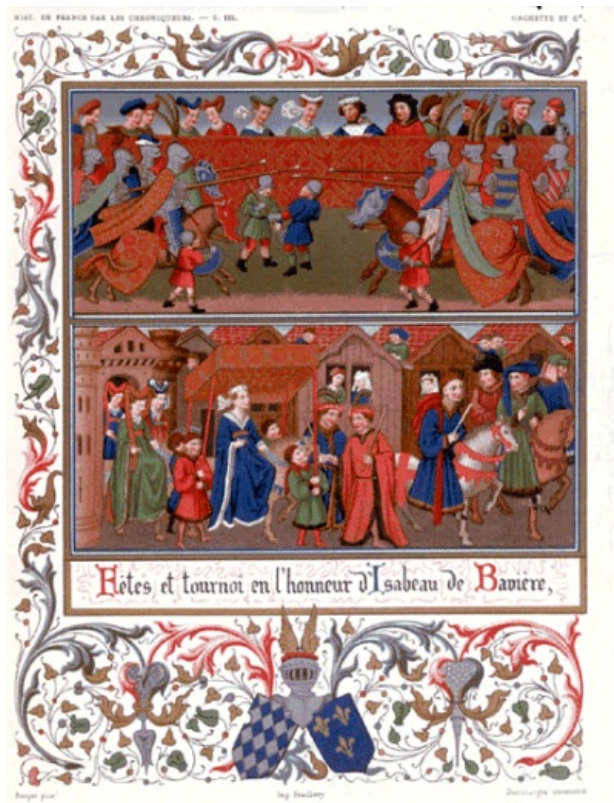 HIST. DE FRANCE PAR LES CHRONIQUEURS. — T. III.
HACHETTE ET Cie.
Fêtes et tournoi en l'honneur d'Isabeau de Bavière,
Imp.